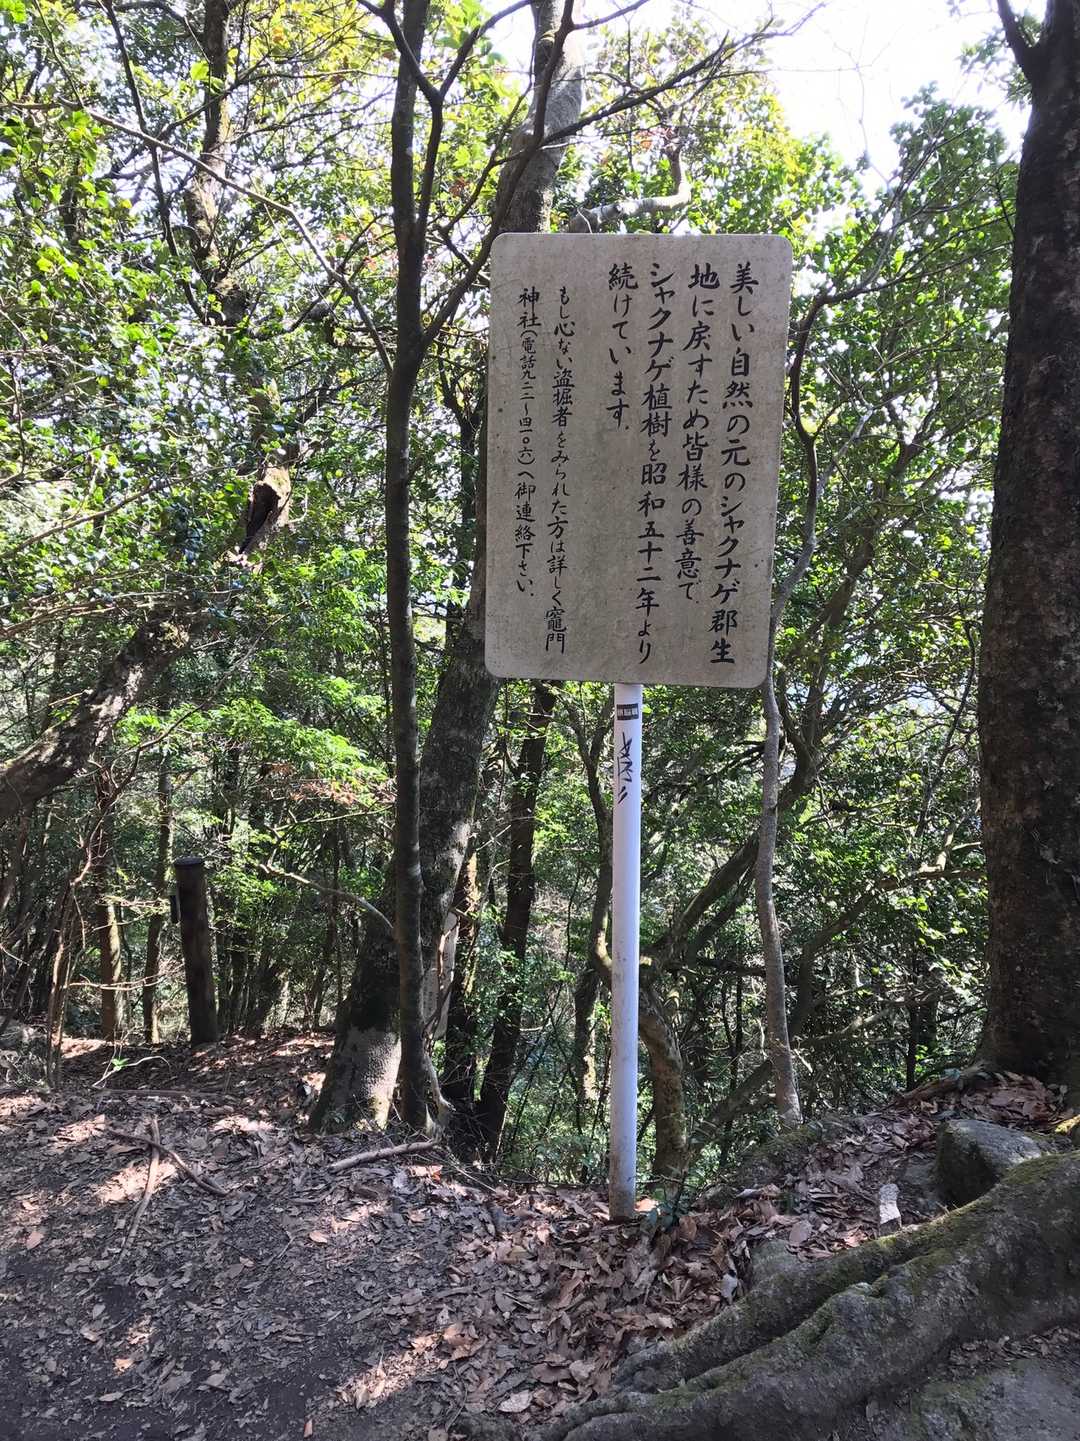 美しい自然の元のシャクナゲ郡生
地に戻すため皆様の善意で
シャクナゲ植樹を昭和五十二年より
続けています.
もし心ない盗掘者をみられた方は詳しく竈門
神社(電話九二二〜四一〇六)へ御連絡下さい.